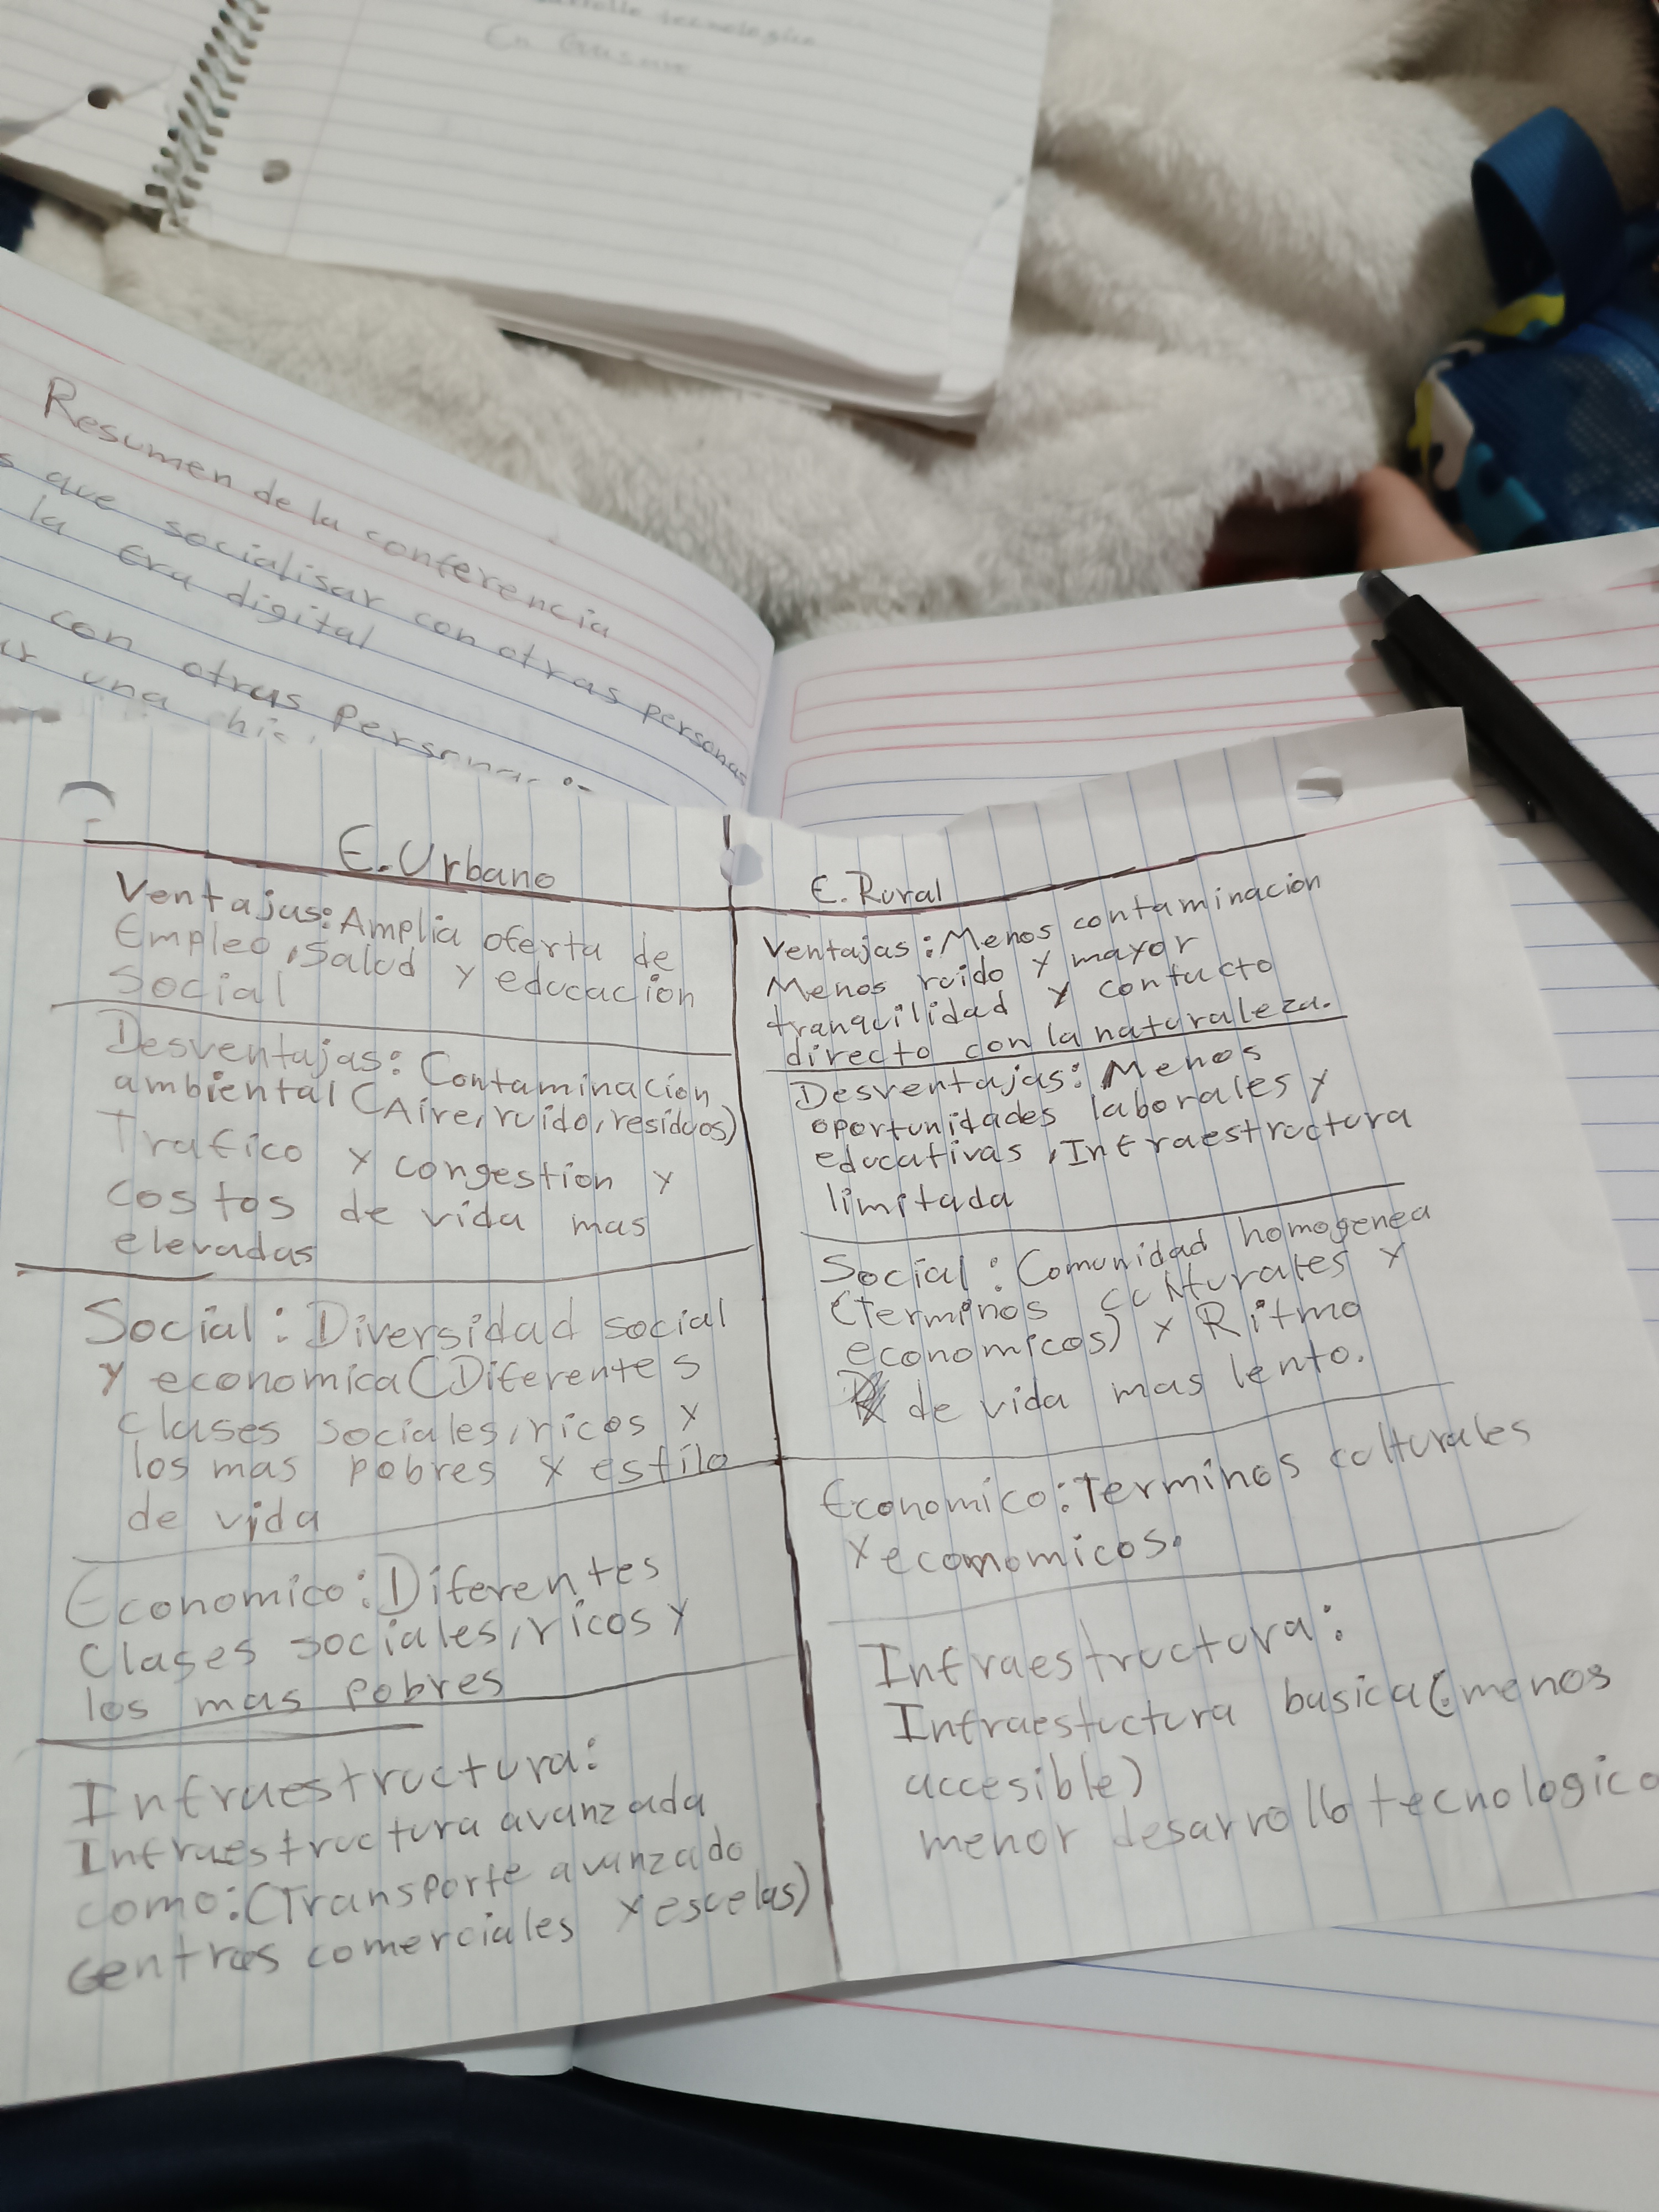 tecnologica
En
Resumen de la conferencia
que socialisar con otras personas
la era digital
con otras
una
E.Urbano
Ventajas: Amplia oferta de
Empleo, Salud y educacion
Social
Desventajas: Contaminacion
ambiental (Aire, ruido, residuos)
Trafico y congestion y
costos de vida mas
elevadas
Social: Diversidad social
y economica (Diferentes
clases sociales, ricos y
los mas pobres y estilo
de vida
Economico: Diferentes
Clases sociales, ricos y
los mas pobres
Infraestructura:
Infraestructura avanzada
como: (Transporte avanzado
centros comerciales y escuelas)
E.Rural
Ventajas: Menos contaminacion
Menos ruido y mayor
tranquilidad y contacto
directo con la naturaleza.
Desventajas: Menos
oportunidades laborales y
educativas, Infraestructura
limitada
Social: Comunidad homogenea
(terminos culturales y
economicos) y Ritmo
de vida mas lento.
Economico: Terminos culturales
y economicos.
Infraestructura:
Infraestuctura basica (menos
accesible)
menor desarrollo tecnologico